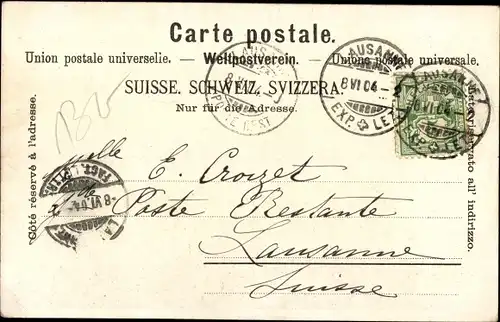 Carte postale.
Union postale universelle. — Weltpostverein. — Unione postale universale.
SUISSE. SCHWEIZ. SVIZZERA.
Nur für die Adresse.
Côté réservé à l'adresse.
all' indirizzo.
LAUSANNE
8 VI 04
EXP. LET.
LAUSANNE
VI 04
EXP. LET.
8 VI 04
elle E. Croizet
Poste Restante
Lausanne
Suisse